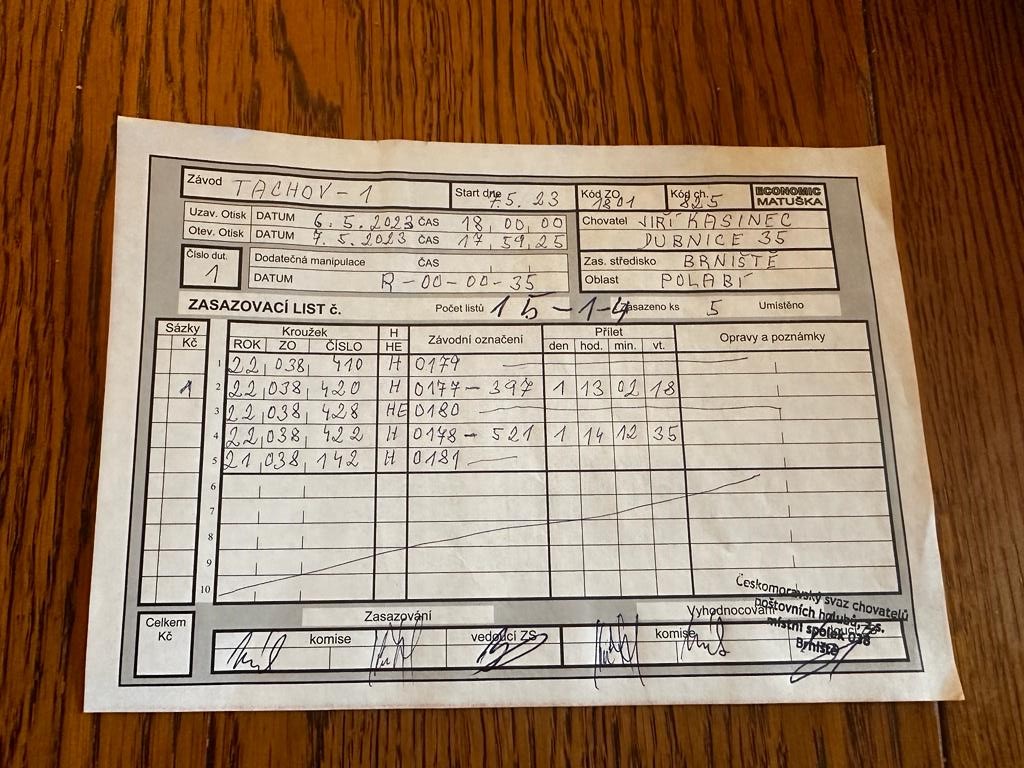 Závod TACHOV-1 Start dne 7.5.23 Kód ZO 1801 Kód ch. 825 ECONOMIC MATUŠKA
Uzav. Otisk DATUM 6.5.2023 ČAS 18,00,00 Chovatel JIŘÍ KASINEC
Otev. Otisk DATUM 7.5.2023 ČAS 17,59,25 DUBNICE 35
Číslo dut. 1 Dodatečná manipulace ČAS Zas. středisko BRNIŠTĚ
DATUM R-00-00-35 Oblast POLABÍ
ZASAZOVACÍ LIST č. Počet listů 15-1-4 Zasazeno ks 5 Umístěno
Sázky Kč Kroužek H HE Závodní označení Přílet Opravy a poznámky
ROK ZO ČÍSLO den hod. min. vt.
1 22,038, 410 H 0179
2 22,038, 420 H 0177-397 1 13 02 18
3 22,038, 428 HE 0180
4 22,038, 422 H 0178-521 1 14 12 35
5 21,038, 142 H 0181
6
7
8
9
10
Celkem Kč Zasazování Vyhodnocování
komise vedoucí ZS komise
Českomoravský svaz chovatelů
poštovních holubů, z.s.
místní spolek 038
Brniště